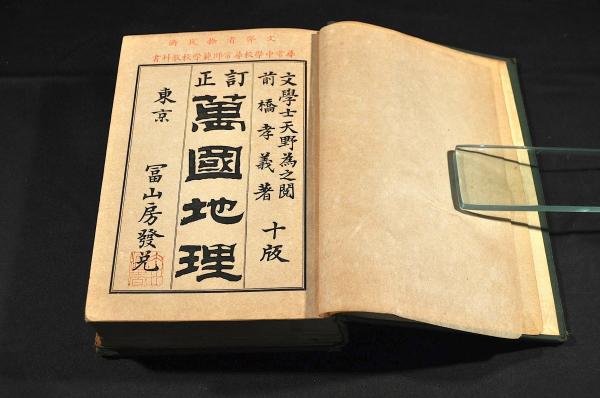 文部省檢定濟
尋常中學校尋常師範學校敎科書
文學士天野為之閱
前橋孝義著 十版
訂正
萬國地理
東京
冨山房發兌